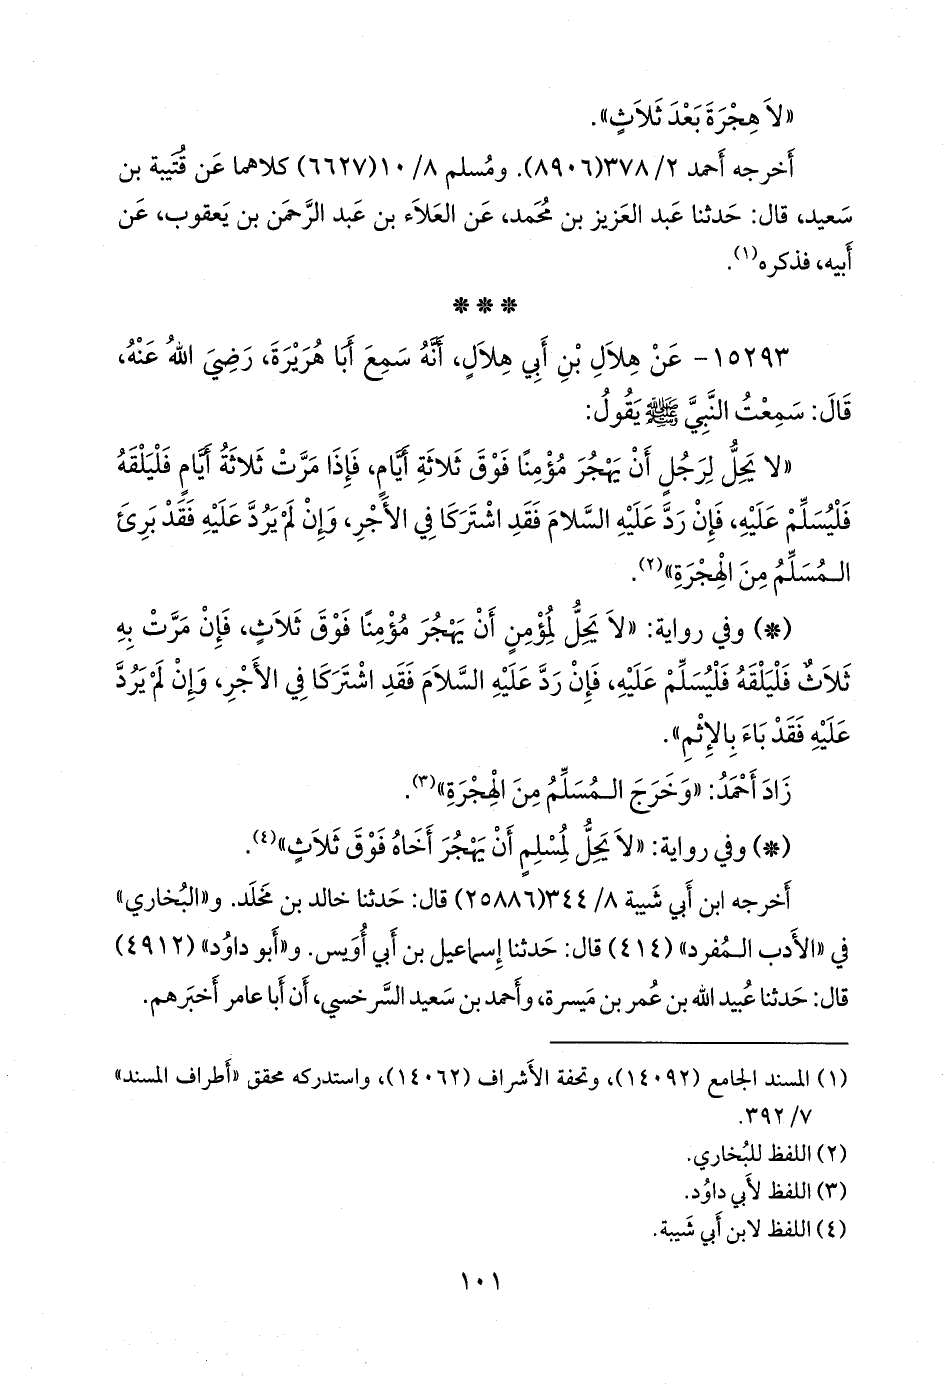 «لاَ هِجْرَةَ بَعْدَ ثَلاَثٍ».
أَخرجه أَحمد ٢/ ٣٧٨(٨٩٠٦). ومُسلم ٨/ ١٠(٦٦٢٧) كلاهما عَن قُتَيبة بن
سَعيد، قال: حَدثنا عَبد العَزيز بن مُحمد، عَن العَلاَء بن عَبد الرَّحمَن بن يَعقوب، عَن
أَبيه، فذكره(١).
* * *
١٥٢٩٣- عَنْ هِلاَلِ بْنِ أَبِي هِلاَلٍ، أَنَّهُ سَمِعَ أَبَا هُرَيْرَةَ، رَضِيَ اللهُ عَنْهُ،
قَالَ: سَمِعْتُ النَّبِيَّ ﷺ يَقُولُ:
«لا يَحِلُّ لِرَجُلٍ أَنْ يَهْجُرَ مُؤْمِنًا فَوْقَ ثَلاثَةِ أَيَّامٍ، فَإِذَا مَرَّتْ ثَلاثَةُ أَيَّامٍ فَلْيَلْقَهُ
فَلْيُسَلِّمْ عَلَيْهِ، فَإِنْ رَدَّ عَلَيْهِ السَّلامَ فَقَدِ اشْتَرَكَا فِي الأَجْرِ، وَإِنْ لَمْ يَرُدَّ عَلَيْهِ فَقَدْ بَرِئَ
الـمُسَلِّمُ مِنَ الْهِجْرَةِ»(٢).
(*) وفي رواية: «لاَ يَحِلُّ لِمُؤْمِنٍ أَنْ يَهْجُرَ مُؤْمِنًا فَوْقَ ثَلاَثٍ، فَإِنْ مَرَّتْ بِهِ
ثَلاَثٌ فَلْيَلْقَهُ فَلْيُسَلِّمْ عَلَيْهِ، فَإِنْ رَدَّ عَلَيْهِ السَّلاَمَ فَقَدِ اشْتَرَكَا فِي الأَجْرِ، وَإِنْ لَمْ يَرُدَّ
عَلَيْهِ فَقَدْ بَاءَ بِالإِثْمِ».
زَادَ أَحْمَدُ: «وَخَرَجَ الـمُسَلِّمُ مِنَ الْهِجْرَةِ»(٣).
(*) وفي رواية: «لاَ يَحِلُّ لِمُسْلِمٍ أَنْ يَهْجُرَ أَخَاهُ فَوْقَ ثَلاَثٍ»(٤).
أَخرجه ابن أَبي شَيبة ٨/ ٣٤٤(٢٥٨٨٦) قال: حَدثنا خالد بن مَخلَد. و«البُخاري»
في «الأَدب الـمُفرد» (٤١٤) قال: حَدثنا إِسماعيل بن أَبي أُوَيس. و«أَبو داوُد» (٤٩١٢)
قال: حَدثنا عُبيد الله بن عُمر بن مَيسرة، وأَحمد بن سَعيد السَّرخسي، أَن أَبا عامر أَخبَرهم.
(١) المسند الجامع (١٤٠٩٢)، وتحفة الأَشراف (١٤٠٦٢)، واستدركه محقق «أَطراف المسند»
٧/ ٣٩٢.
(٢) اللفظ للبُخاري.
(٣) اللفظ لأَبي داوُد.
(٤) اللفظ لابن أَبي شَيبة.
١٠١